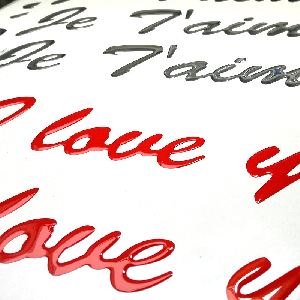 Je T'aim
Je T'aim
I love y
love y